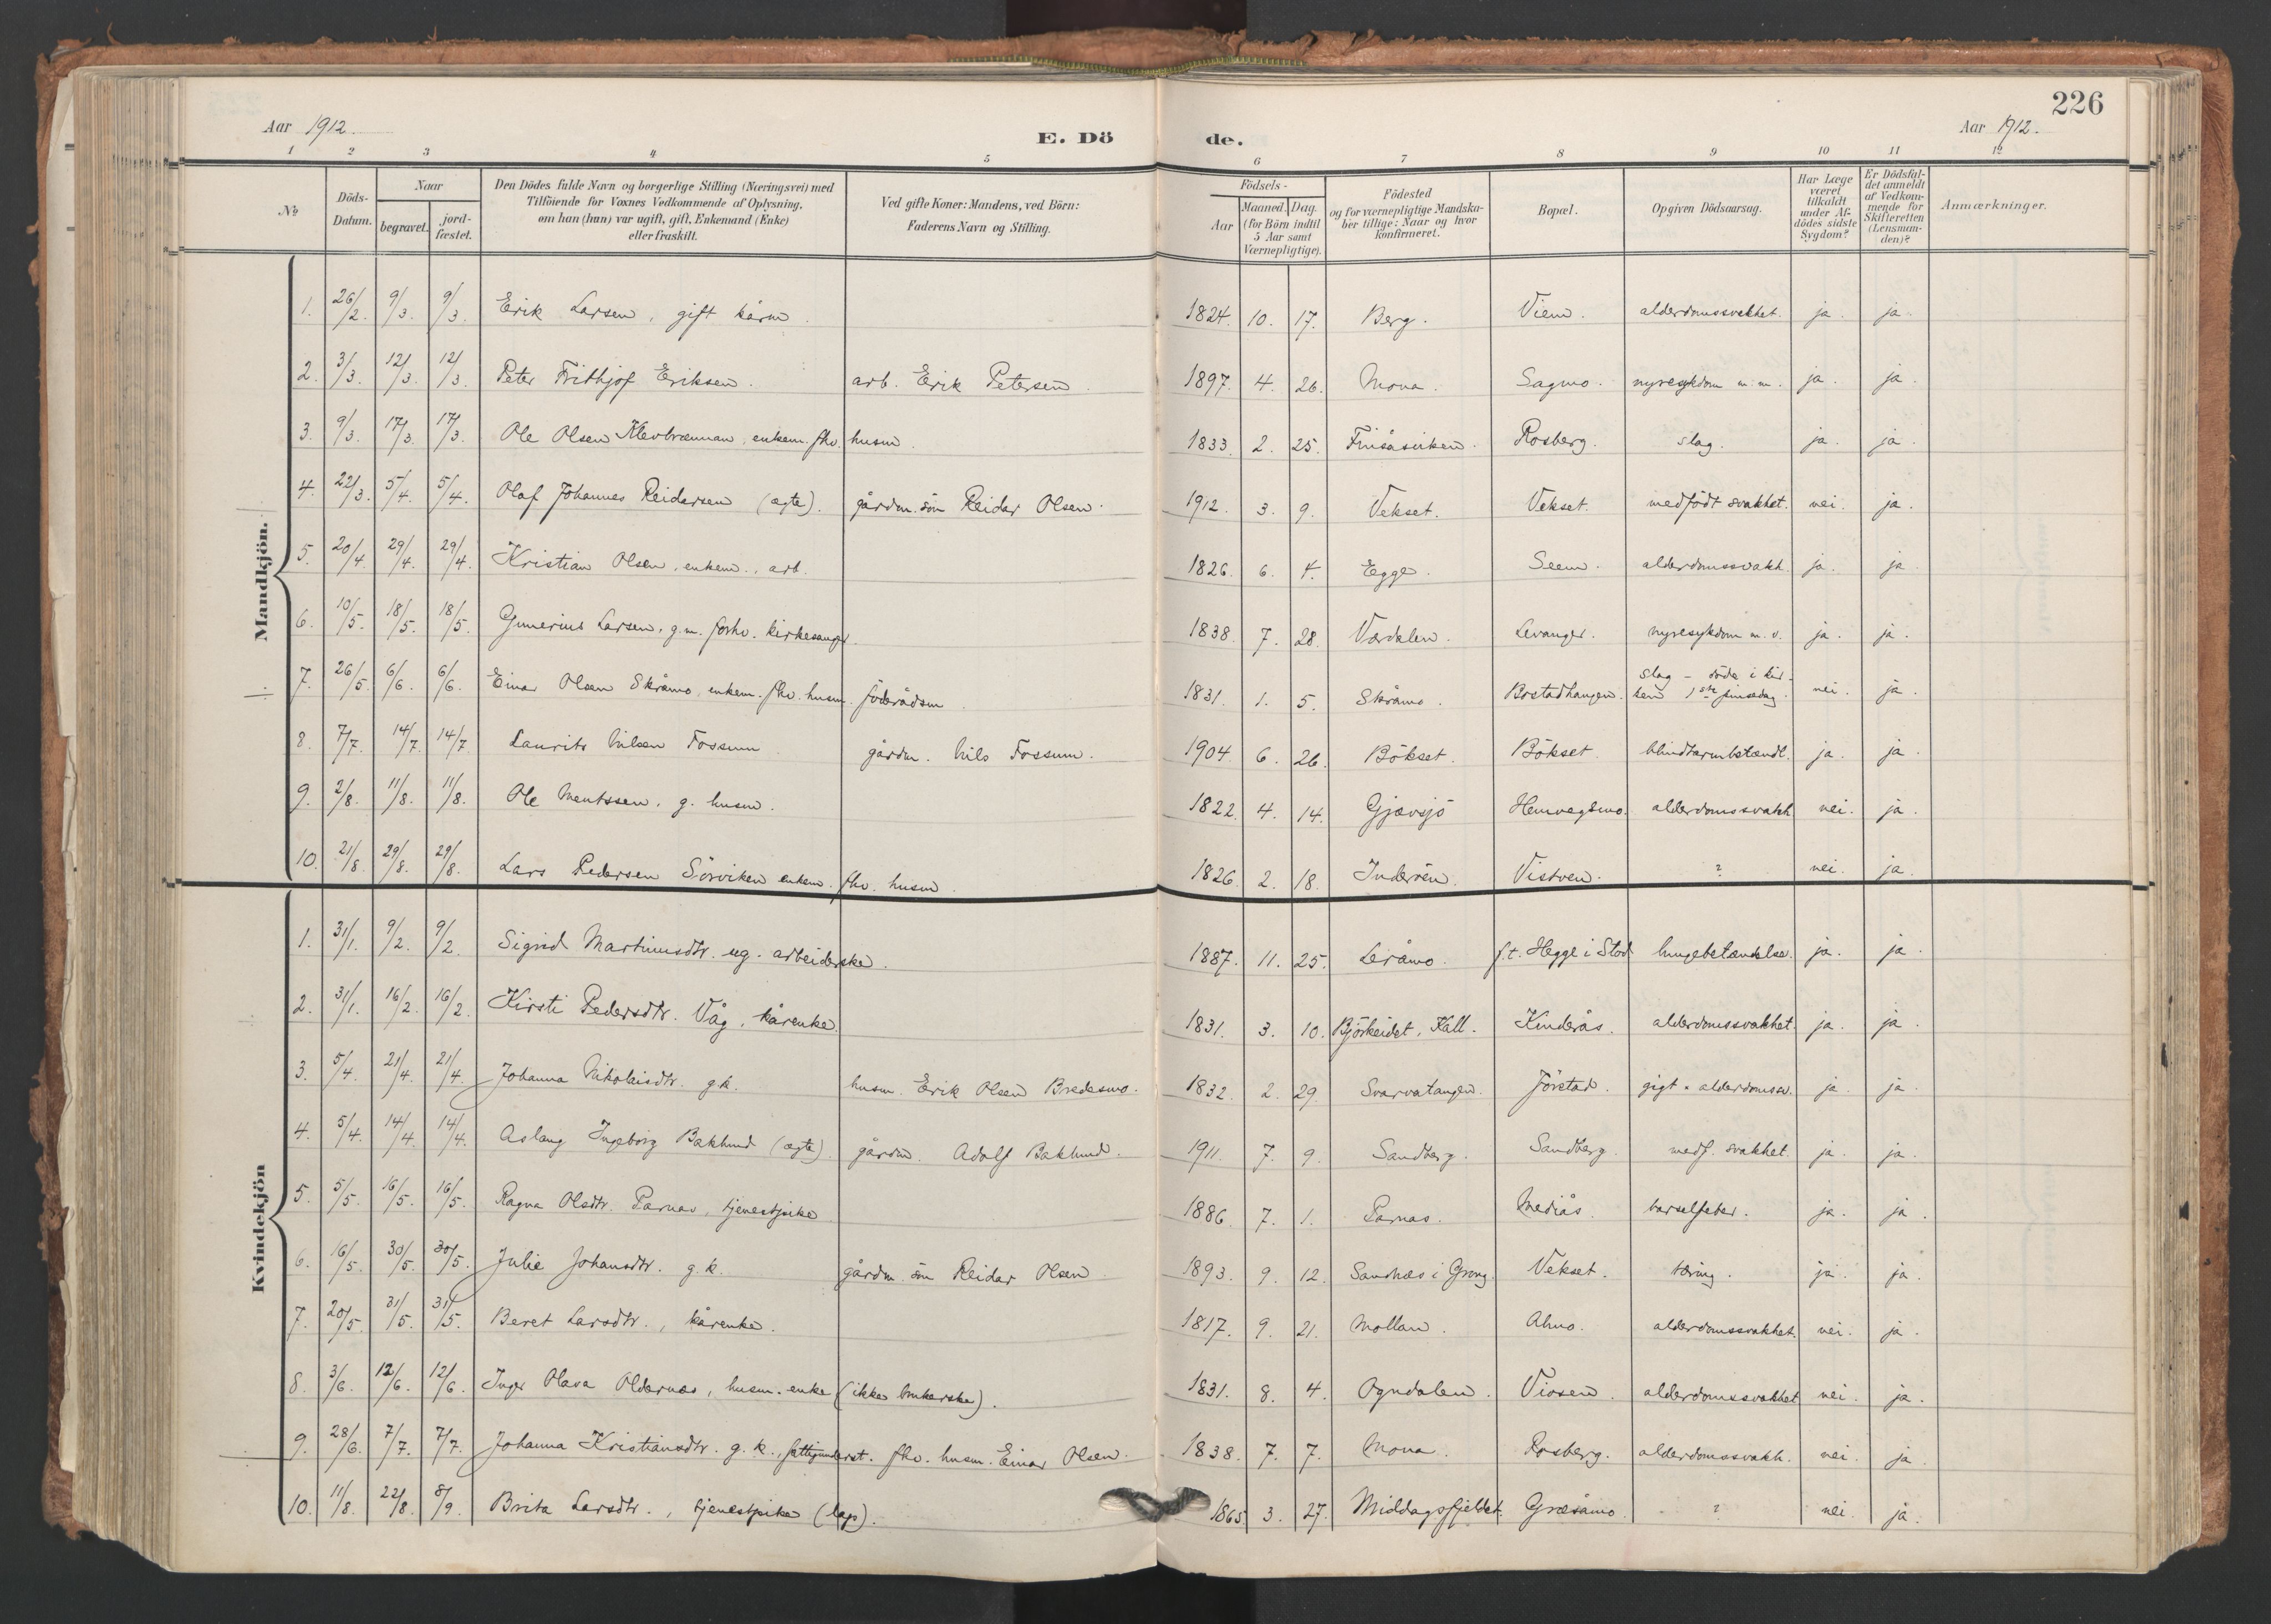 226
Aar 1912.
E. Dö de.
Aar 1912.
1 2 3 4 5 6 7 8 9 10 11 12
№
Döds-Datum.
Naar
begravet.
jord-fæstet.
Den Dödes fulde Navn og borgerlige Stilling (Næringsvei) med
Tilföiende for Voxnes Vedkommende af Oplysning,
om han (hun) var ugift, gift, Enkemand (Enke)
eller fraskilt.
Ved gifte Koner: Mandens, ved Börn:
Faderens Navn og Stilling.
Födsels-
Aar
Maaned. Dag.
(for Börn indtil
5 Aar samt
Værnepligtige).
Födested
og for værnepligtige Mandska-
ber tillige: Naar og hvor
konfirmeret.
Bopæl.
Opgiven Dödsaarsag.
Har Læge
været
tilkaldt
under Af-
dödes sidste
Sygdom?
Er Dödsfal-
det anmeldt
af Vedkom-
mende for
Skifteretten
(Lensman-
den)?
Anmærkninger.
Mandkjön.
1. 26/2 9/3. 9/3. Erik Larsen, gift kårm. 1824. 10. 17. Berg. Viem. alderdomssvakhet. ja. ja.
2. 3/3. 12/3. 12/3. Peter Frithjof Eriksen. arb. Erik Petersen. 1897. 4. 26. Mona. Sagmo. nyresykdom m.m. ja. ja.
3. 9/3. 17/3. 17/3. Ole Olsen Klevbrænnan, enkem. fhv. husm. 1833. 2. 25. Rosberg. slag. ja. ja.
4. 22/3. 5/4. 5/4. Olaf Johannes Reidarsen (ægte). gårdm. sön Reidar Olsen. 1912. 3. 9. Vekset. Vekset. medfödt svakhet. nei. ja.
5. 20/4. 29/4. 29/4. Kristian Olsen, enkem., arb. 1826. 6. 4. Egge. Seem. alderdomssvakh. ja. ja.
6. 10/5. 18/5. 18/5. Gunerius Larsen, g.m. forhv. kirkesanger. 1838. 7. 28. Værdalen. Levanger. nyresykdom m.v. ja. ja.
7. 26/5. 6/6. 6/6. Einar Olsen Skråmo, enkem. fhv. husm. föderådsm. 1831. 1. 5. Skråmo. Bostadhaugen. slag – döde i kir-
ken 1ste pinsedag. nei. ja.
8. 7/7. 14/7. 14/7. Laurits Nilsen Fossum gårdm. Nils Fossum. 1904. 6. 26. Bökset. Bökset. blindtarmbetændl. ja. ja.
9. 2/8. 11/8. 11/8. Ole Mentssen, g. husm. 1822. 4. 14. Gjævsjö Hemvegsmo. alderdomssvakh nei. ja.
10. 21/8. 29/8. 29/8. Lars Pedersen Sörviken enkem. fhv. husm. 1826. 2. 18. Inderöen. Vistven. ? nei. ja.
Kvindekjön
1. 31/1. 9/2. 9/2 Sigrid Martinusdtr. ug. arbeiderske. 1887. 11. 25. Leråmo. f.t. Hegge i Stod lungebetændelse. ja. ja.
2. 31/1. 16/2. 16/2. Kirsti Pedersdtr. Våg, kårenke. 1831. 3. 10. Björkeidet, Kall. Kinderås. alderdomssvakhet. ja. ja.
3. 5/4. 21/4. 21/4. Johanna Nikolaisdtr. g.k. husm. Erik Olsen Bredesmo. 1832. 2. 29. Svarvatangen. Förstad. gigt. alderdomssv. ja. ja.
4. 5/4. 14/4. 14/4. Aslaug Ingeborg Baklund (ægte). gårdm. Adolf Baklund. 1911. 7. 9. Sandberg. Sandberg. medf. svakhet. ja. ja.
5. 5/5. 16/5. 16/5. Ragna Olsdtr. Parnas, tjenestpike 1886. 7. 1. Parnas. Mediås. barselfeber. ja. ja.
6. 16/5. 30/5. 30/5. Julie Johansdtr. g.k. gårdm. sön Reidar Olsen. 1893. 9. 12. Sandnes i Grong. Vekset. tæring. ja. ja.
7. 20/5. 31/5. 31/5. Beret Larsdtr., kårenke. 1817. 9. 21. Mollan. Almo. alderdomssvakhet. nei. ja.
8. 3/6. 12/6. 12/6. Inger Olava Oldernæs, husm. enke (ikke brukerske). 1831. 8. 4. Ogndalen. Viosen. alderdomssvakhet nei. ja.
9. 28/6. 7/7. 7/7. Johanna Kristiansdtr. g.k., fattigunderst. fhv. husm. Einar Olsen. 1838. 7. 7. Mona. Rosberg. alderdomssvakh. nei. ja.
10. 11/8. 22/8. 8/9. Brita Larsdtr., tjenestpike (lap). 1865. 3. 27. Middagsfjeldet. Græsåmo. ? nei. ja.